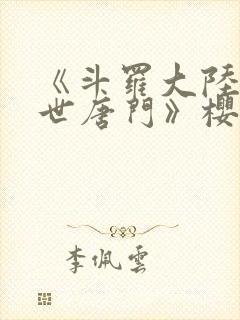 《斗羅大陸
世唐門》櫻
李佩雲